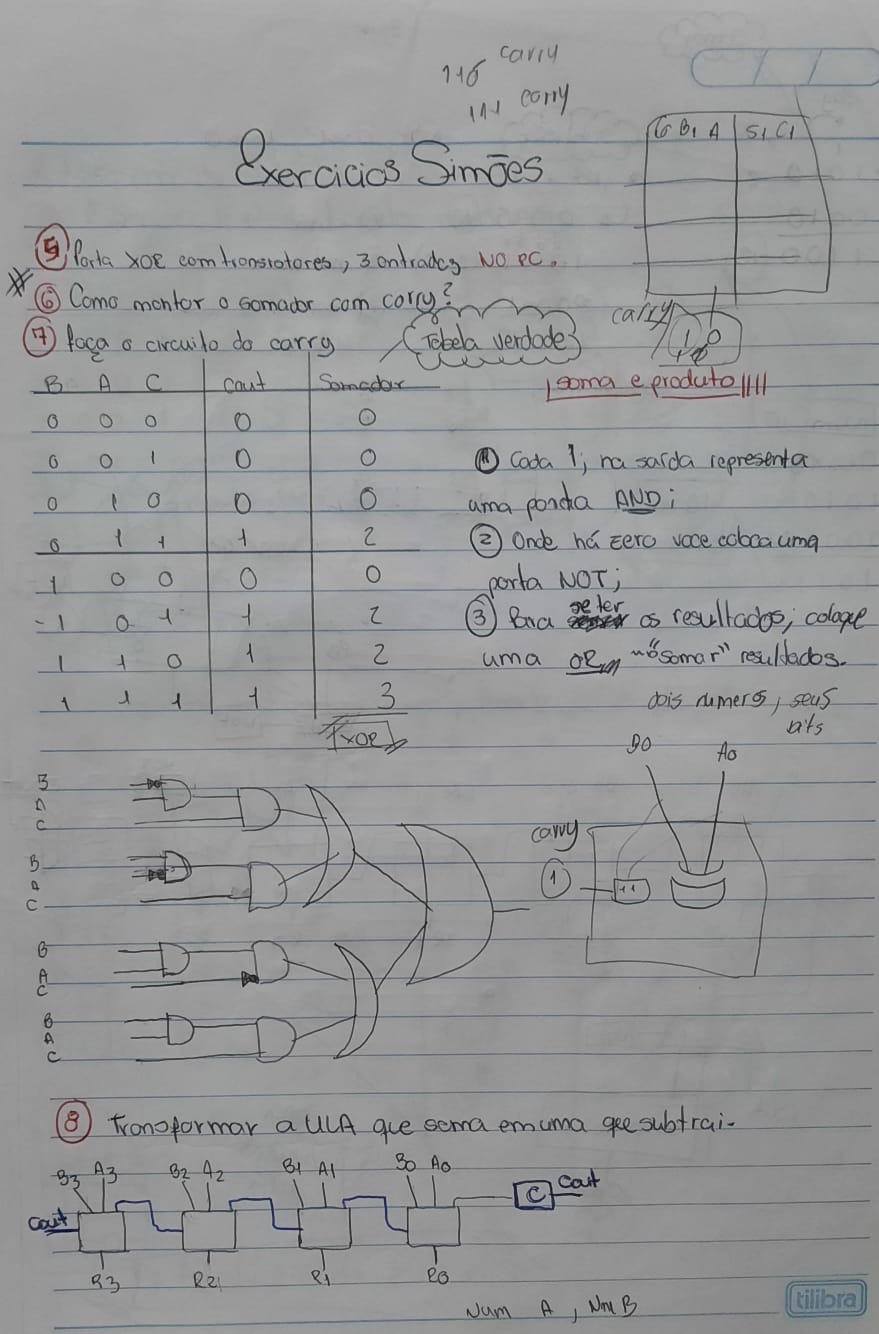 carry
111 carry
C B1 A S1 C1
Exercicios Simões
5 Porta XOR com transistores, 3 entradas NO PC.
# 6 Como montar o somador com carry?
carry
1 0
7 Faça o circuito do carry
Tabela verdade
soma e produto
B A C Cout Somador
0 0 0 0 0
0 0 1 0 0
0 1 0 0 0
0 1 1 1 2
1 0 0 0 0
-1 0 1 1 2
1 1 0 1 2
1 1 1 1 3
XOR
1 Cada 1, na saída representa
uma porta AND;
2 Onde há zero voce coloca uma
porta NOT;
3 Para se ter os resultados, coloque
uma OR, "somar" resultados.
dois numeros, seus
bits
B0 A0
B
A
C
B
A
C
B
A
C
B
A
C
carry
1
8 Transformar a ULA que soma em uma que subtrai.
B3 A3 B2 A2 B1 A1 B0 A0
C Cout
Cout
R3 R2 R1 R0
Num A, Num B
tilibra